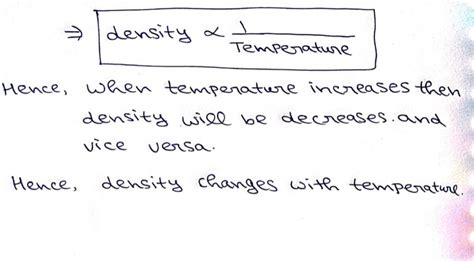 ⇒ density ∝ 1/Temperature
Hence, when temperature increases then
density will be decreases. and
vice versa.
Hence, density changes with temperature.